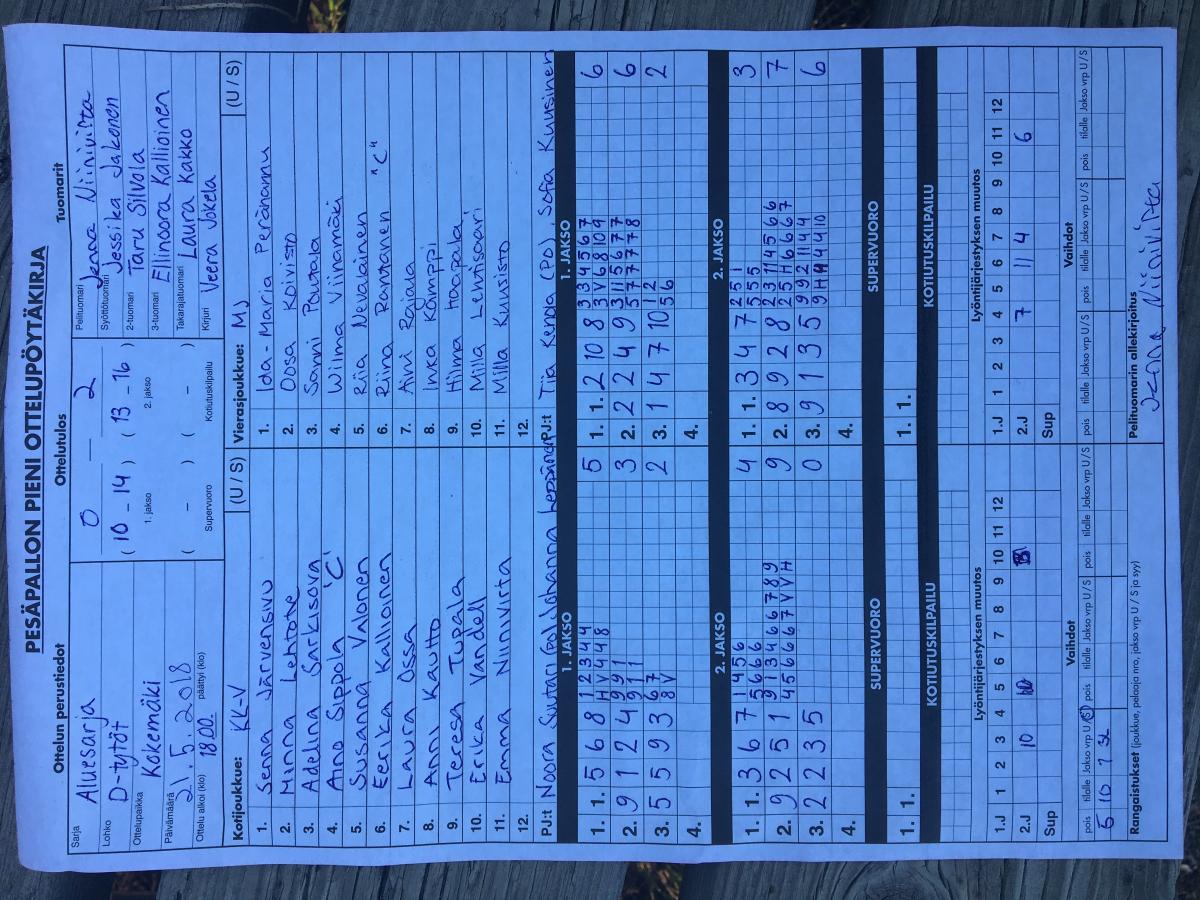 PESÄPALLON PIENI OTTELUPÖYTÄKIRJA
Ottelun perustiedot
Sarja Aluesarja
Lohko D-tytöt
Ottelupaikka Kokemäki
Päivämäärä 21.5.2018
Ottelu alkoi (klo) 18.00 päättyi (klo)
Ottelutulos
0 – 2
( 10 - 14 ) ( 13 - 16 )
1. jakso 2. jakso
( - ) ( - )
Supervuoro Kotiutuskilpailu
Tuomarit
Pelituomari Jenna Niinivirta
Syöttötuomari Jessika Jakonen
2-tuomari Taru Silvola
3-tuomari Ellinoora Kallioinen
Takarajatuomari Laura Kakko
Kirjuri Veera Jokela
Kotijoukkue: KK-V (U / S)
1. Senna Järvensivu
2. Minna Lehtotie
3. Adelina Sarkisova
4. Aino Sippola "C"
5. Susanna Valonen
6. Eerika Kallioinen
7. Laura Ossa
8. Anni Kautto
9. Teresa Tupala
10. Erika Vandell
11. Emma Niinivirta
12.
PJ:t Noora Suutari (PO), Johanna Leppänen
Vierasjoukkue: MJ (U / S)
1. Ida-Maria Peränamu
2. Oosa Koivisto
3. Sanni Poutala
4. Wilma Viinamäki
5. Riia Nevalainen
6. Riina Rantanen "C"
7. Aini Rajala
8. Inka Kömppi
9. Hilma Haapala
10. Milla Lehtisaari
11. Milla Kuusisto
12.
PJ:t Tiia Kenga (PO), Sofia Kuusinen
1. JAKSO
1. 1. 5 6 8 1 2 3 4 4 5
H V 4 4 8
2. 9 1 2 4 9 9 1 3
9 1 1
3. 5 5 9 3 6 7 2
8 V
4.
1. JAKSO
1. 1. 2 10 8 3 3 4 5 6 7 6
3 V 6 8 10 9
2. 2 2 4 9 3 11 5 6 7 7 6
5 7 7 7 7 8
3. 1 4 7 10 1 2 2
5 6
4.
2. JAKSO
1. 1. 3 6 7 1 4 5 6 4
5 6 6 6
2. 9 2 5 1 9 1 3 4 6 6 7 8 9 9
4 5 6 6 6 7 V V H
3. 2 2 3 5 0
4.
2. JAKSO
1. 1. 3 4 7 2 5 1 3
5 5 5
2. 8 9 2 8 2 3 11 4 5 6 6 7
2 5 H 6 6 6 7
3. 9 1 3 5 9 9 2 11 4 4 6
9 H H 4 4 10
4.
SUPERVUORO
1. 1.
SUPERVUORO
1. 1.
KOTIUTUSKILPAILU
KOTIUTUSKILPAILU
Lyöntijärjestyksen muutos
1.J 1 2 3 4 5 6 7 8 9 10 11 12
2.J 10
Sup
Lyöntijärjestyksen muutos
1.J 1 2 3 4 5 6 7 8 9 10 11 12
2.J 7 11 4 6
Sup
Vaihdot
pois tilalle Jakso vrp U/S pois tilalle Jakso vrp U/S pois tilalle Jakso vrp U/S
5 10 2
Vaihdot
pois tilalle Jakso vrp U/S pois tilalle Jakso vrp U/S pois tilalle Jakso vrp U/S
Rangaistukset (joukkue, pelaaja nro, jakso vrp U / S ja syy)
Pelituomarin allekirjoitus
Jenna Niinivirta